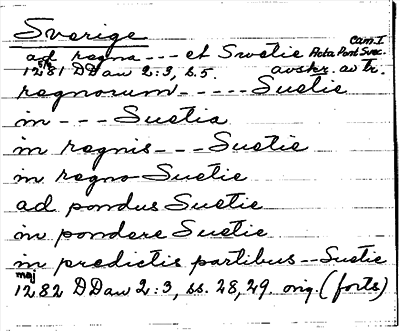 Sverige
ad regna --- et Swetie Cam. I. Acta Pont. Svec.
1281 DDan 2:3, s.5. avskr. av tr.
regnorum ----- Suetie
in --- Suetia
in regnis --- Suetie
in regno Suetie
ad pondus Suetie
in pondere Suetie
in predictis partibus -- Suetie
maj
1282 DDan 2:3, ss. 28, 29. orig. (forts)